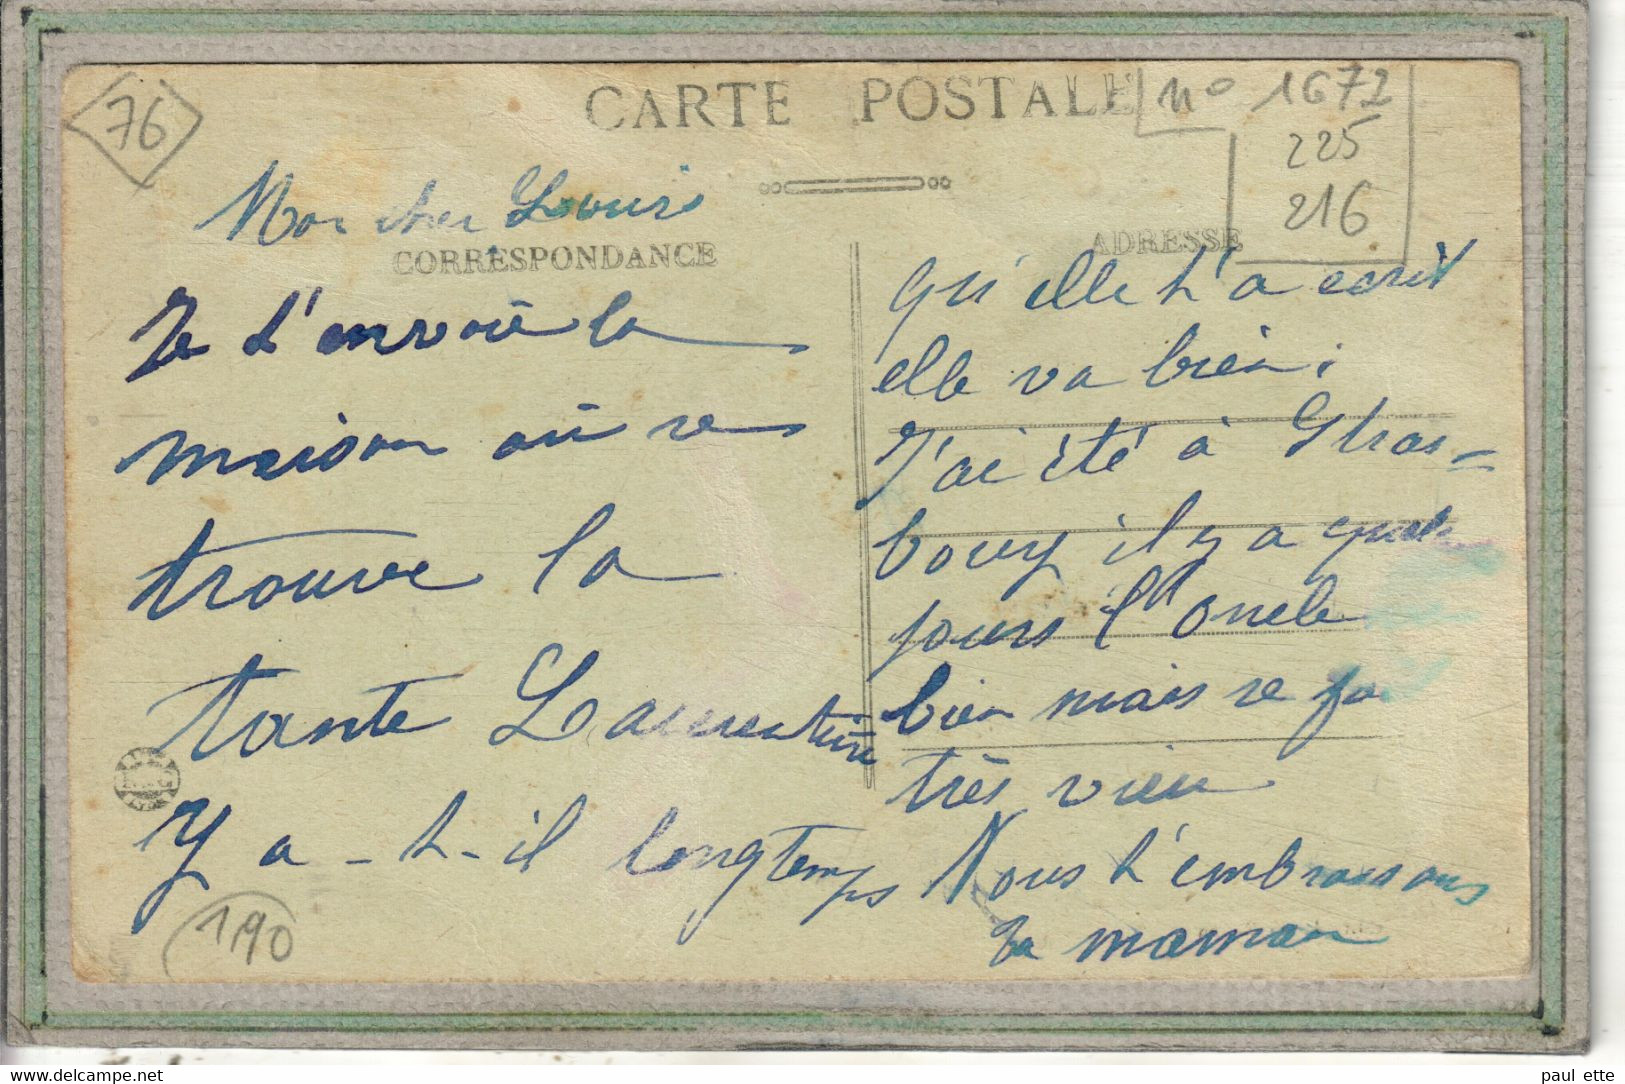 76
CARTE POSTALE
n° 1672
225
216
Mon cher Louis
CORRESPONDANCE
Je t'envoie la
maison où se
trouve la
tante Laurentine
Y a-t-il longtemps
190
ADRESSE
qu'elle t'a ecrit
elle va bien;
J'ai été à Stras=
bourg il y a quel
jours l'oncle
bien mais se fa
très vieu
Nous t'embrassons
Ta maman
delcampe.net
paul ette